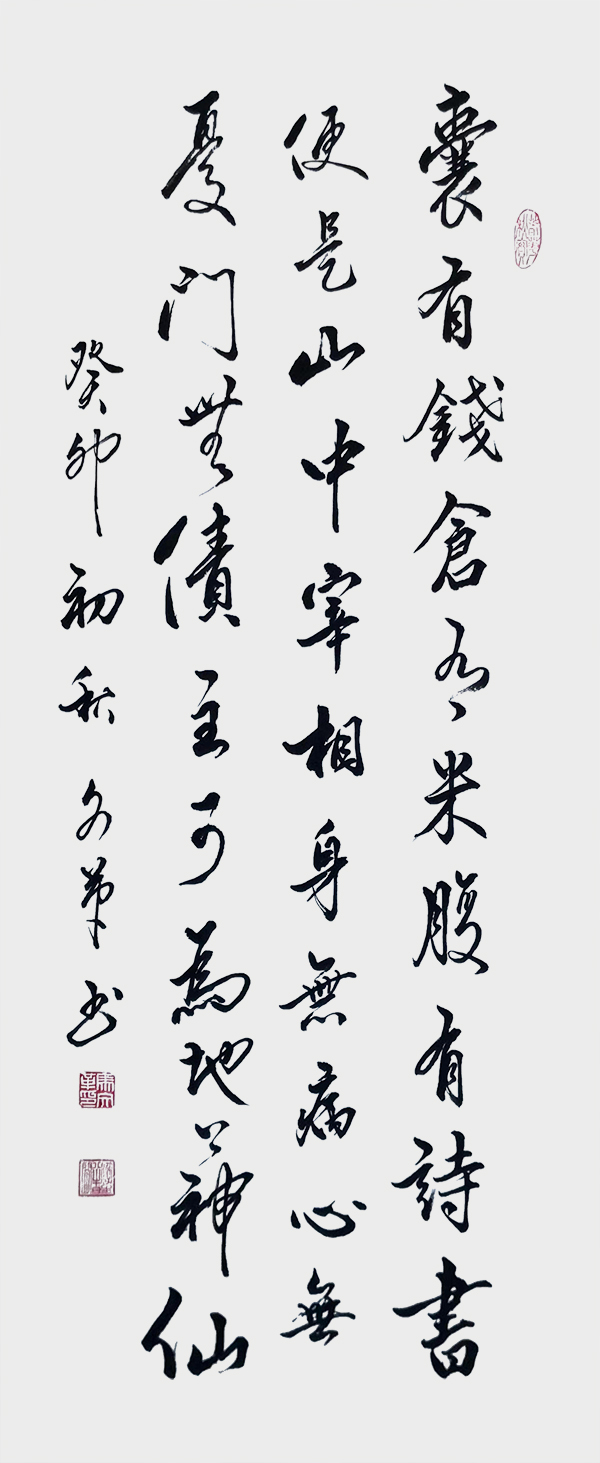 囊有錢倉有米腹有詩書
便是山中宰相身無病心無
憂門無債主可為地上神仙
癸卯初秋文书